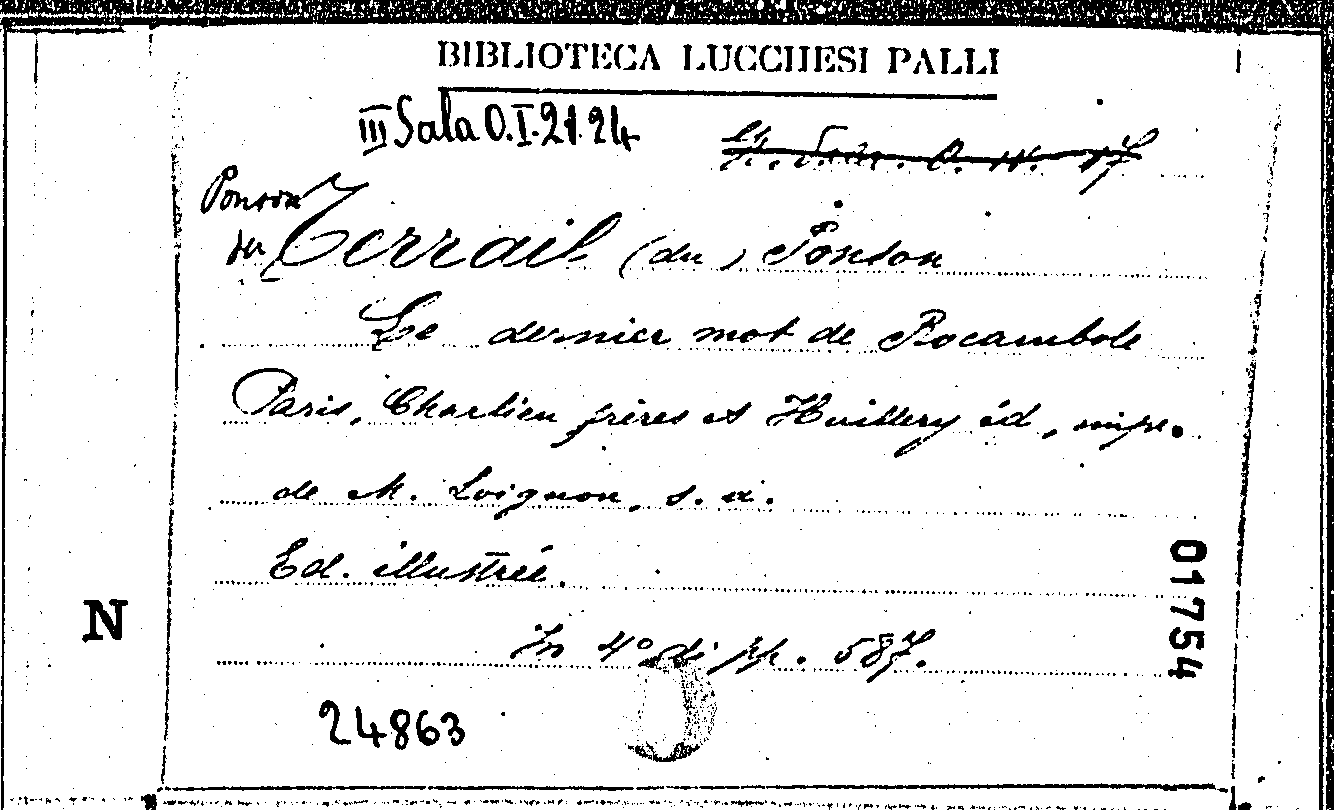 BIBLIOTECA LUCCHESI PALLI
III Sala O.I.21.24
Ponson
du Terrail (du) Ponson
Le dernier mot de Rocambole
Paris, Charlieu frères et Huillery éd, impr.
de M. Loignon, s. a.
Ed. illustrée.
In 4° di pp. 587.
24863
N
01754